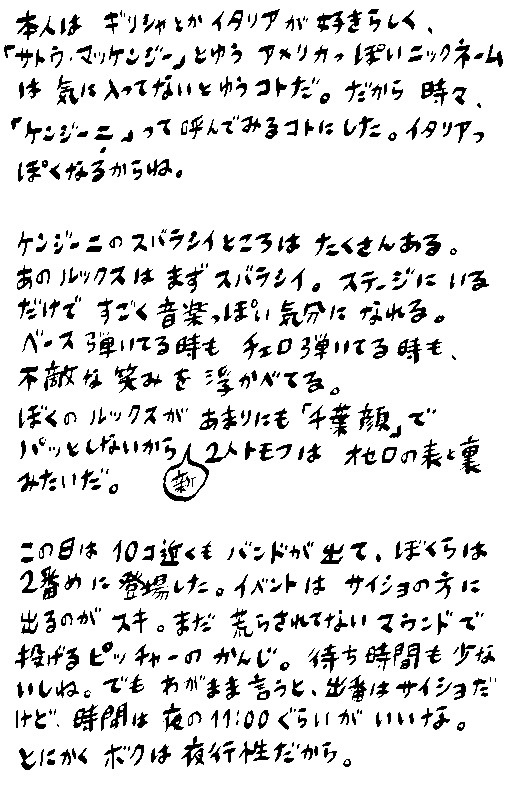 本人は ギリシャとか イタリアが 好きらしく、
「サトウ・マッケンジー」とゆう アメリカっぽいニックネーム
は 気に入ってないとゆうコトだ。だから 時々、
「ケンジーニ」って呼んでみるコトにした。イタリアっ
ぽくなるからね。
ケンジーニのスバラシイところは たくさんある。
あのルックスは まずスバラシイ。ステージに いる
だけで すごく音楽っぽい気分に なれる。
ベース弾いてる時も チェロ弾いてる時も、
不敵な笑みを浮かべてる。
ぼくのルックスが あまりにも「千葉顔」で
パッとしないから、2人トモフは オセロの表と裏
みたいだ。
新
この日は 10コ近くもバンドが出て、ぼくらは
2番めに登場した。イベントは サイショの方に
出るのが スキ。まだ 荒らされてない マウンドで
投げるピッチャーの かんじ。待ち時間も少な
いしね。でも わがまま言うと、出番はサイショだ
けど、時間は 夜の11:00ぐらいが いいな。
とにかく ボクは夜行性だから。